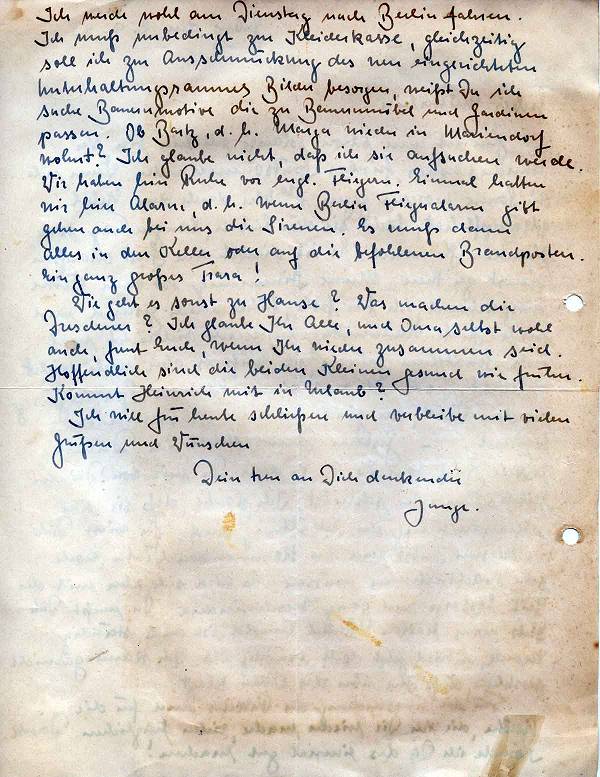 Ich werde wohl am Dienstag nach Berlin fahren.
Ich muß unbedingt zur Kleiderkasse, gleichzeitig
soll ich zur Ausschmückung des neu eingerichteten
Unterhaltungsraumes Bilder besorgen, weißt Du ich
suche Bauernmotive die zu Bauernmöbel und Gardinen
passen. Ob Baitz, d. h. Marga wieder in Mariendorf
wohnt? Ich glaube nicht, daß ich sie aufsuchen werde.
Wir haben hier Ruhe vor engl. Fliegern. Einmal hatten
wir hier Alarm, d. h. wenn Berlin Fliegeralarm gibt
gehen auch bei uns die Sirenen. Es muß dann
alles in den Keller oder auf die befohlenen Brandposten.
Ein ganz großes Trara!
Wie geht es sonst zu Hause? Was machen die
Dresdener? Ich glaube Ihr Alle, und Oma selbst wohl
auch, freut Euch, wenn Ihr wieder zusammen seid.
Hoffendlich sind die beiden Kleinen gesund wie früher.
Kommt Heinrich mit in Urlaub?
Ich will für heute schließen und verbleibe mit vielen
Grüßen und Wünschen
Dein treu an Dich denkender
Junge.